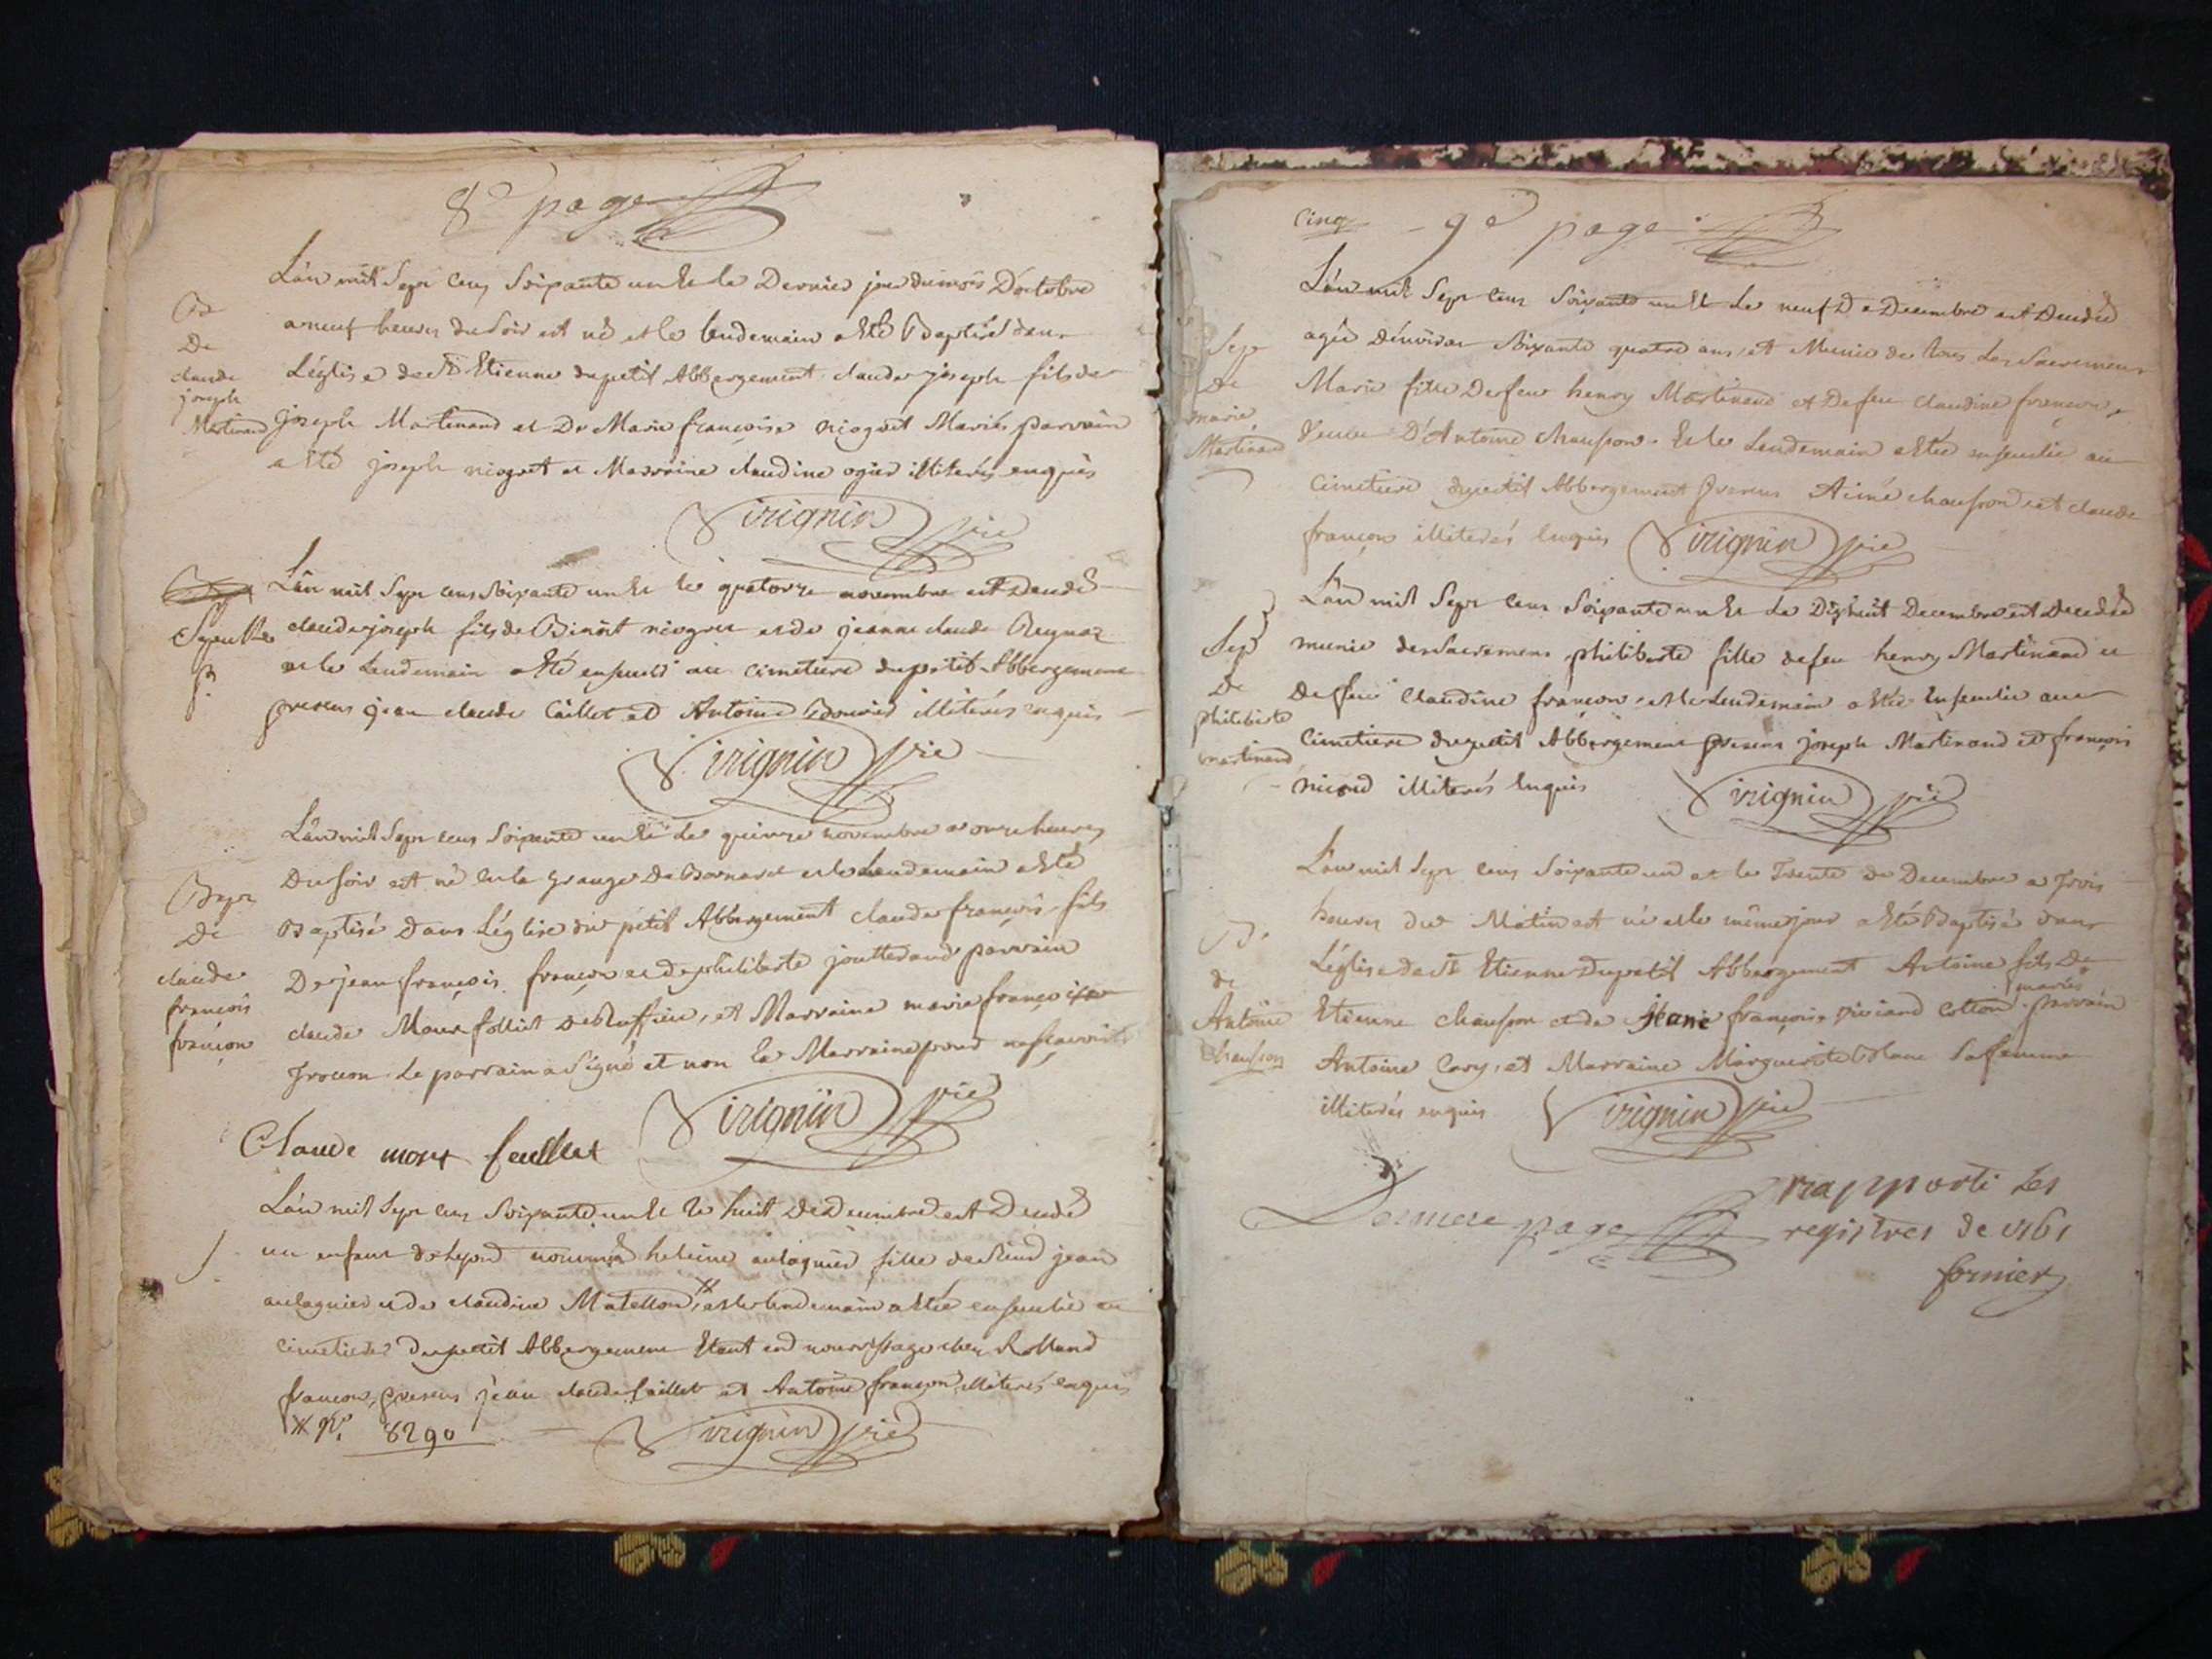 8e page
L'an mil sept cens soixante un et le dernier jour du mois d'octobre
a neuf heures du soir est né et le lendemain a été Baptisé dans
L'église de St Etienne du petit Abbergement claude joseph fils de
joseph Martinand et De Marie françoise niogret Mariés, parrain
a été joseph niogret et Marraine claudine ogier illiterés enquis
B
De
claude
joseph
Martinand
Virignin vic
L'an mil sept cens soixante un et le quatorze novembre est decedé
claude joseph fils de Benoit niogret et de jeanne claude Reynaz
et le lendemain a été enseveli au cimetiere du petit Abbergement
presens jean claude Caillet et Antoine illiterés enquis
Sepulture
Virignin vic
L'an mil sept cens soixante un et le quinze novembre a onze heures
Du soir est né en la grange De Bornaret et le lendemain a été
Baptisé Dans L'église du petit Abbergement claude françois fils
De jean françois françon et de philiberte jouttedand parrain
claude Mour folliet De Ruffieu, et Marraine marie françoise
Trocon le parrain a signé et non la Marraine pour
Bapt
De
claude
françois
françon
Virignin vic
Claude mour feullet
L'an mil sept cens soixante un et le huit de Decembre est Decedé
un enfant de Lyon nommé heleine aulagnier fille de Sieur jean
aulagnier et de claudine Matellon et le lendemain a été ensevelie au
cimetiere du petit Abbergement Etant en nourrissage chez Rolland
françon, presens jean claude Caillet et Antoine françon illiterés enquis
S.
8290
Virignin vic
cinq 9e page
L'an mil sept cens soixante un et le neuf De Decembre est Decedée
agée d'environ soixante quatre ans, et Munie de tous les Sacremens
Marie fille De feu henry Martinand et De feu claudine françon,
Veuve D'Antoine chausson. Et le Lendemain a été ensevelie au
cimetiere du petit Abbergement presens Aimé chausson, et claude
françon illiterés enquis Virignin vic
Sep
De
marie
Martinand
L'an mil sept cens soixante un et le Dixhuit Decembre est Decedée
munie des Sacremens philiberte fille de feu henry Martinand et
De feu claudine françon, et le Lendemain a été Ensevelie au
Cimetiere du petit Abbergement presens joseph Martinand et françois
nicod illiterés enquis Virignin vic
Sep
De
philiberte
martinand
L'an mil sept cens soixante un et le Trente de Decembre a Trois
heures du Matin est né et le même jour a été Baptisé dans
L'église de St Etienne du petit Abbergement Antoine fils De
Etienne chausson et de jeane françoise viviand Cotton mariés parrain
Antoine Cary, et Marraine Marguerite Blanc Sa femme
illiterés enquis Virignin vic
B.
de
Antoine
Chausson
Derniere page
rapporté les
registres de 1761
fornier